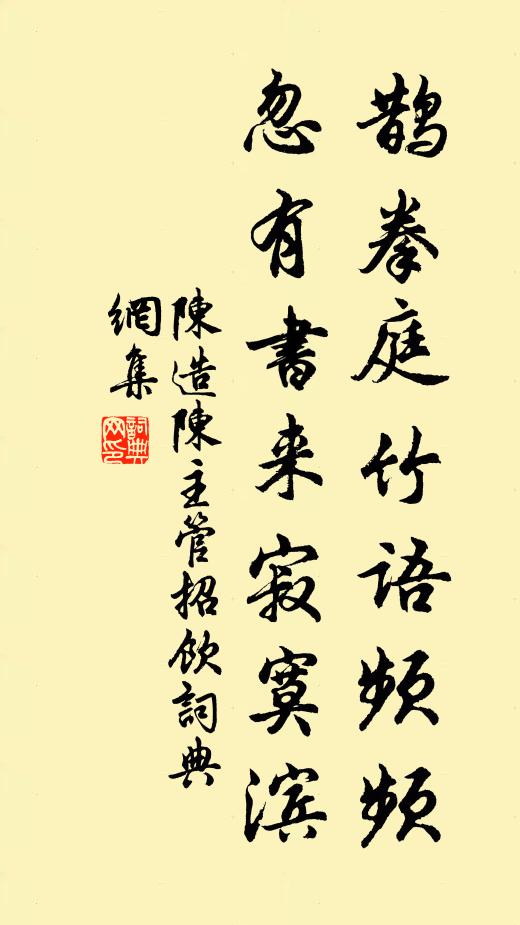 鹊拳庭竹语频频
忽有書来寂寞滨
陳造陳主管招飲詞典
網集
詞典
网印